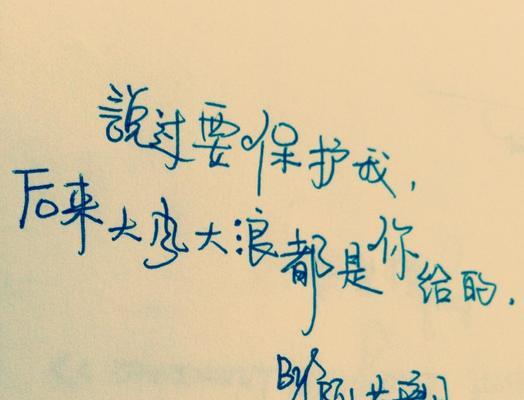 說过要保护我，
后来大风大浪都是你给的．
By